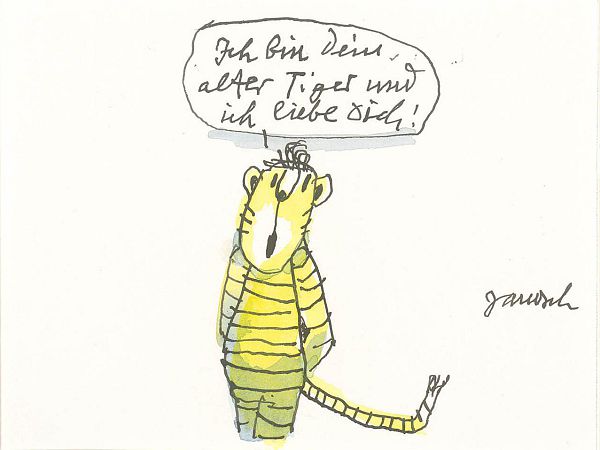 Ich bin Dein
alter Tiger und
ich liebe Dich!
Janosch